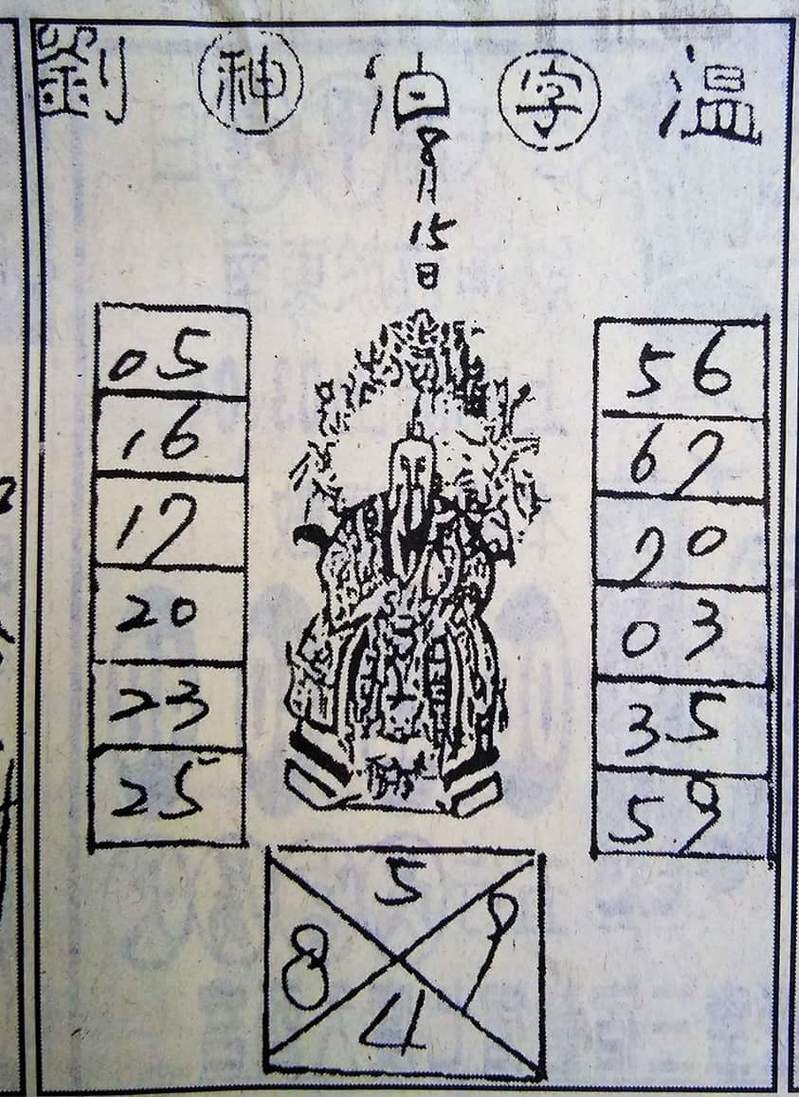 劉 神 泊 字 温
8月
15
日
05
16
17
20
23
25
56
67
70
03
35
59
5
8 9
4